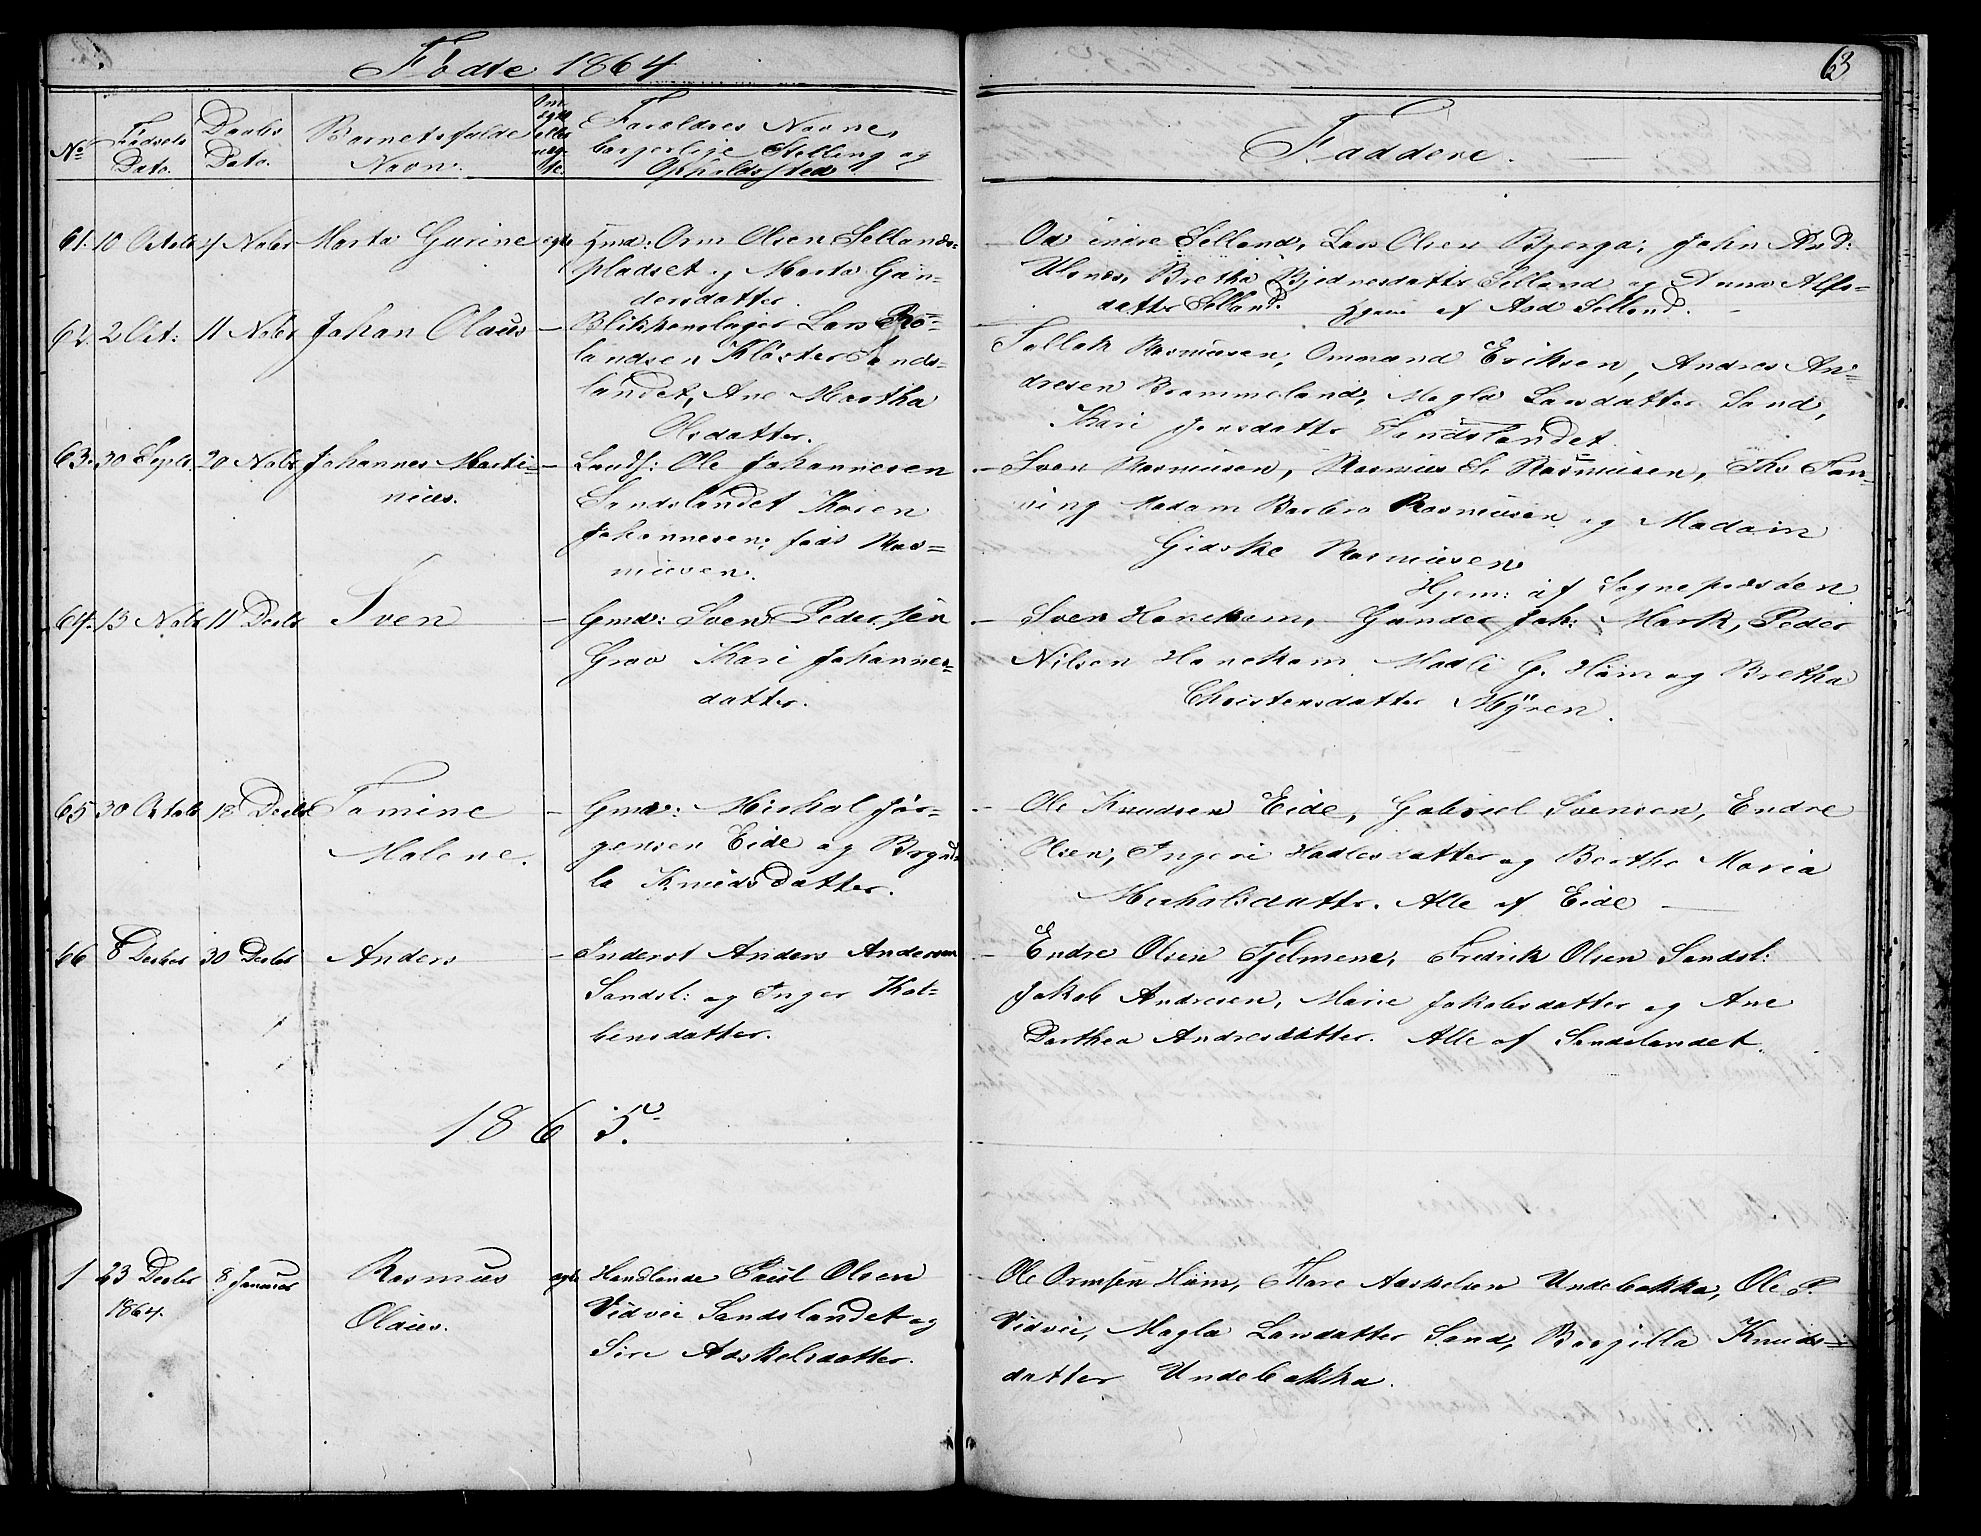 Fødte 1864
63
No
Fødsels Dato.
Daabs Dato.
Barnets fulde Navn.
Om ægte eller uægte.
Forældres Navne, borgerlige Stilling og Opholdssted
Faddere.
61. 10 Octob 4 Nobr Marta Gurine egte Gmd: Orm Olsen Sellands-
pladset og Marta Gun-
dersdatter.
Od indre Selland, Lars Olsen Bjerga, John And:
Ulsnes, Bretha Bjednesdatter Selland og Anna Alfs-
datter Selland. Hjem af Asd Selland.
62. 2 Oct: 11 Nobr Johan Olaus — Blikkenslager Lars Ro-
landsen Kloster Sands-
landet, Ane Martha
Olsdatter.
Tollak Rasmusen, Ommund Eriksen, Andres An-
dresen Brommeland, Magla Larsdatter Sand,
Kari Jensdattr Sandslandet.
63. 30 Septb 20 Nobr Johannes Marti-
nius.
— Landh: Ole Johannesen
Sandslandet Karen
Johannesen, föds Ras-
musen.
— Sven Rasmusen, Rasmus S. Rasmusen, Ths Fan-
ning Madam Barbro Rasmusen og Madam
Gidske Rasmusen
Hjem: af Sognepresten
64. 13 Nobr 11 Decbr Sven — Gmd: Sven Pedersen
Grov Kari Johannes-
datter.
— Sven Hanekam, Gunder Joh: Mark, Peder
Nilsen Hanekam Madli G. Häm og Bretha
Christensdatter Myren.
65 30 Octob 18 Decbr Tomine
Malene.
— Gmd: Mickal Jör-
gensen Eide og Brynil-
la Knudsdatter.
— Ole Knudsen Eide, Gabriel Svensen, Endre
Olsen, Ingeri Hadlesdatter og Berthe Maria
Mickalsdattr. Alle af Eide —
66 8 Decber 30 Decbr Anders — Inderst Anders Andersen
Sandsl: og Inger Kol-
bensdatter.
— Endre Olsen Tjelmene, Fredrik Olsen Sandsl:
Jakob Andresen, Marie Jakobsdatter og Ane
Dorthea Andresdatter. Alle af Sandslandet.
1865.
1 23 Decbr
1864.
8 Januar
Rasmus
Olaus.
egte Handlende Paul Olsen
Vidvei Sandslandet og
Siri Adskelsdatter.
Ole Ormsen Häm, Thore Aaskelsen Undebakka, Ole P.
Vidvei, Magla Larsdatter Sand, Borgilla Knuds-
datter Undebakka.